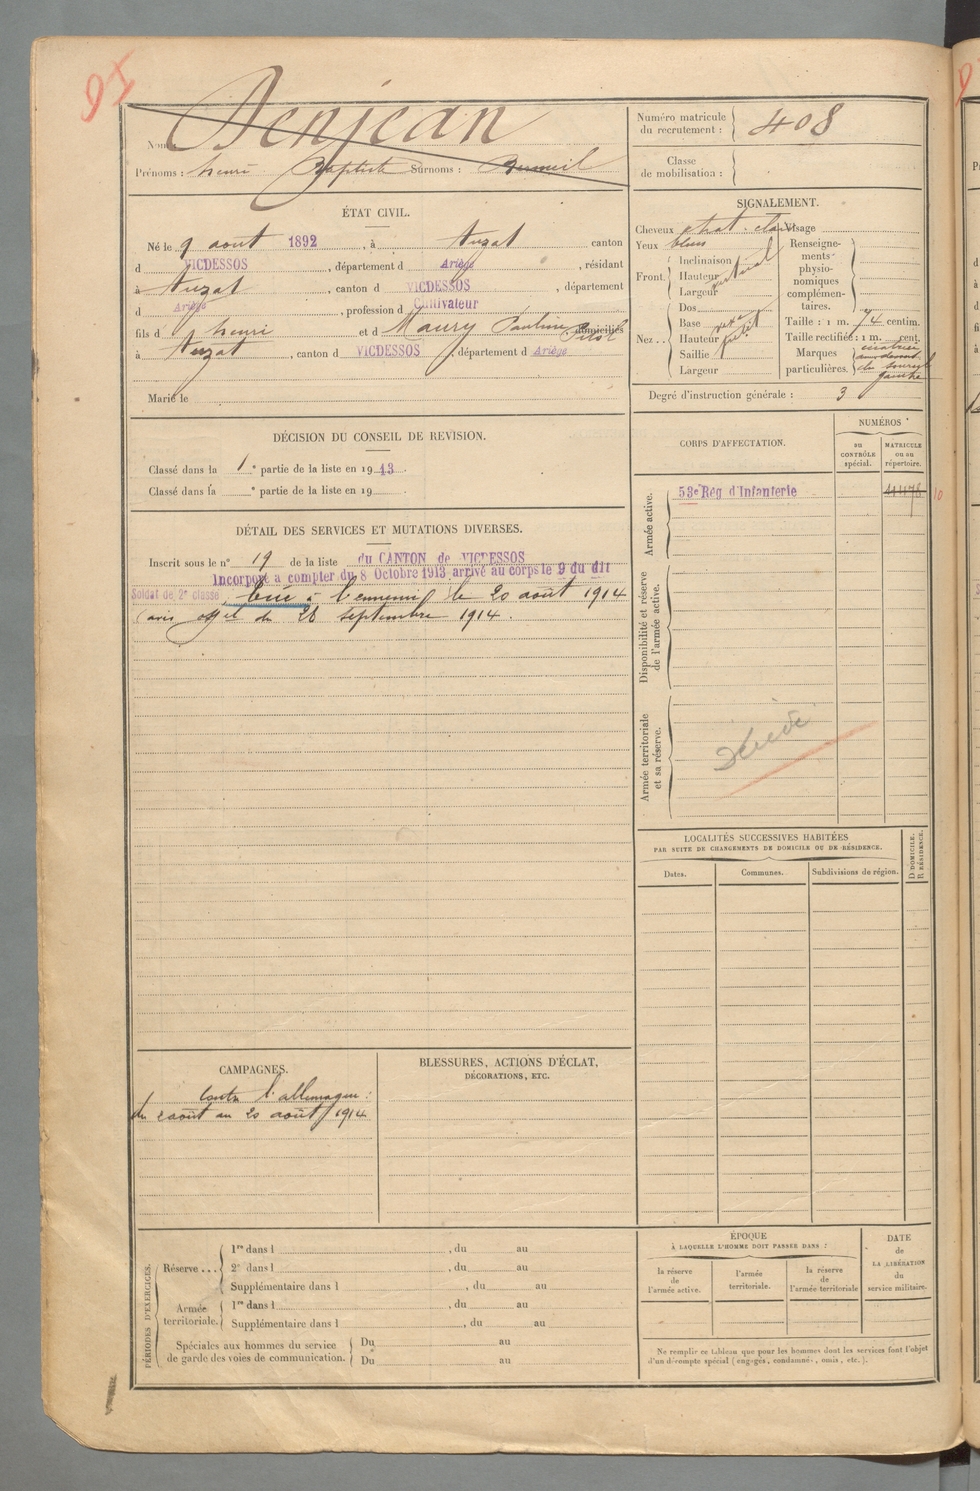 95
Nom : Denjean
Prénoms : henri Baptiste Surnoms :
Numéro matricule du recrutement : 408
Classe de mobilisation :
ÉTAT CIVIL.
Né le 9 aout 1892, à Auzat canton
d VICDESSOS, département d Ariège, résidant
à Auzat, canton d VICDESSOS, département
d Ariège, profession d Cultivateur
fils d henri et d Maury Pauline domiciliés
à Auzat, canton d VICDESSOS, département d Ariège
Marié le
SIGNALEMENT.
Cheveux chat. clair Visage
Yeux bleus
Front. Inclinaison
Hauteur
Largeur
Nez.. Dos
Base
Hauteur
Saillie
Largeur
Renseignements physionomiques complémentaires.
Taille : 1 m. 74 centim.
Taille rectifiée : 1 m. cent.
Marques particulières. cicatrice
au-dessus
du sourcil
gauche
Degré d'instruction générale : 3
DÉCISION DU CONSEIL DE REVISION.
Classé dans la 1e partie de la liste en 1913.
Classé dans la e partie de la liste en 19
DÉTAIL DES SERVICES ET MUTATIONS DIVERSES.
Inscrit sous le n° 19 de la liste du CANTON de VICDESSOS
Incorporé à compter du 8 Octobre 1913 arrivé au corps le 9 du dit
Soldat de 2e classe. Tué à l'ennemi le 20 août 1914
(avis offel du 28 septembre 1914.
CORPS D'AFFECTATION.
NUMÉROS
au CONTRÔLE spécial.
MATRICULE ou au répertoire.
Armée active.
53e Rég d'Infanterie
10
Disponibilité et réserve de l'armée active.
Armée territoriale et sa réserve.
LOCALITÉS SUCCESSIVES HABITÉES
PAR SUITE DE CHANGEMENTS DE DOMICILE OU DE RÉSIDENCE.
Dates.
Communes.
Subdivisions de région.
D DOMICILE.
R RÉSIDENCE.
CAMPAGNES.
Contre l'allemagne :
du 2 août au 20 août 1914
BLESSURES, ACTIONS D'ÉCLAT,
DÉCORATIONS, ETC.
PÉRIODES D'EXERCICES.
Réserve ...
1re dans l , du au
2e dans l , du au
Supplémentaire dans l , du au
Armée territoriale.
1re dans l , du au
Supplémentaire dans l , du au
Spéciales aux hommes du service de garde des voies de communication.
Du au
Du au
ÉPOQUE
À LAQUELLE L'HOMME DOIT PASSER DANS :
la réserve de l'armée active.
l'armée territoriale.
la réserve de l'armée territoriale
DATE de LA LIBÉRATION du service militaire.
Ne remplir ce tableau que pour les hommes dont les services font l'objet
d'un décompte spécial (engagés, condamnés, omis, etc.).